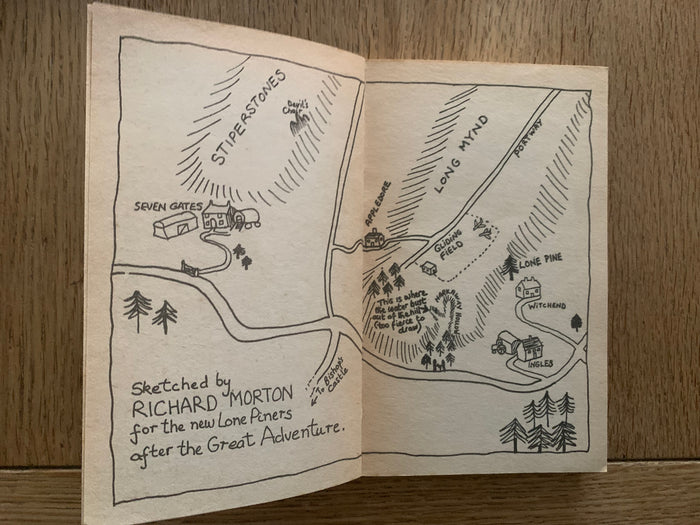 STIPERSTONES
Devil's
Chair
SEVEN GATES
Sketched by
RICHARD MORTON
for the new Lone Piners
after the Great Adventure.
To Bishop's
Castle
APPLEDORE
LONG MYND
PORTWAY
GLIDING
FIELD
LONE PINE
WITCHEND
INGLES
This is where
the water bust
out of the hill
(too fierce to
draw)
HOLLOW